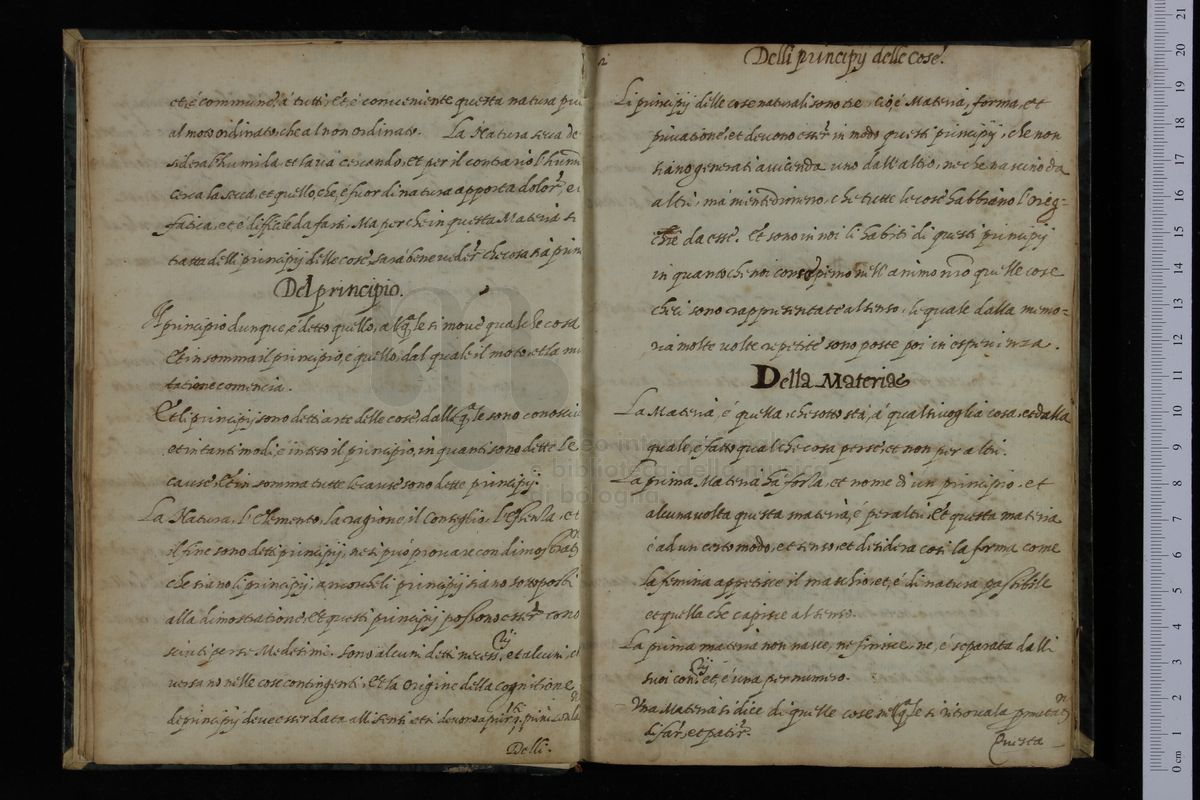 et è commune à tutti, Et è conveniente questa natura più
al moto ordinato, che al non ordinato. La Natura secca de
sidera l'humida, et la và cercando, et per il contrario l'humi
cerca la secca, et quello, che, è fuor di natura apporta dolor,
fatica, et è dificile da farsi. Ma perche in questa Materia si
tratta delli principij delle cose, sarà bene veder che cosa sia prin
Del principio.
Il principio dunque, è detto quello, al qle si move qualche cosa
Et in somma il principio, è quello, dal quale il moto, et la mu
tatione comencia.
Et li principij sono detti arte delle cose, dalle qle sono conosciu
et in tanti modi, è inteso il principio, in quanti sono dette le
cause, Et in somma tutte le cause sono dette principij.
La Natura, l'Elemento, la ragione, il Consiglio, l'essenza, et
il fine sono detti principij, ne si può provare con dimostrat
che siano li principij, ancorche li principij siano sottoposti
alla dimostratione, Et questi principij possono esser cono
sciuti per se Medesimi. sono alcuni detti necessrij, et alcuni,
versano nelle cose contingenti. Et la origine della cognitione
de principij deve esser data alli sensi
Delli.
2
Delli principij delle Cose.
Li principij delle cose naturali sono tre cioè Materia, forma, et
privatione, et devono esser in modo questi principij, che non
siano generati à vicenda uno dall'altro, ne che nascino da
altri, mà nientedimeno, che tutte le cose habbiano l'orig-
ine da esse. Et sono in noi li habiti di questi principij
in quanto che noi concepimo nell'animo nro quelle cose
che ci sono rappresentate al senso, le quale dalla memo-
ria molte volte repetite sono poste poi in esperienza.
Della Materia
La Materia, è quella, che sotto stà, à qual si voglia cosa, et dalla
quale, è fatto qualche cosa per sè, et non per altri.
La prima Materia hà forza, et nome di un principio, et
alcuna volta questa materia, è per altri, Et questa materia
è ad un certo modo, et senso, et desidera così la forma come
la femina appetisce il maschio, et, è di natura passibile
et quella che capisce al senso.
La prima materia non nasce, ne finisce, ne, è separata dalli
suoi conrij et, è una per numero.
Una Materia si dice di quelle cose nel qle si ritrova la
di far, et patir.
Questa
museo internazionale
e biblioteca della musica
di bologna
0 cm 1 2 3 4 5 6 7 8 9 10 11 12 13 14 15 16 17 18 19 20 21